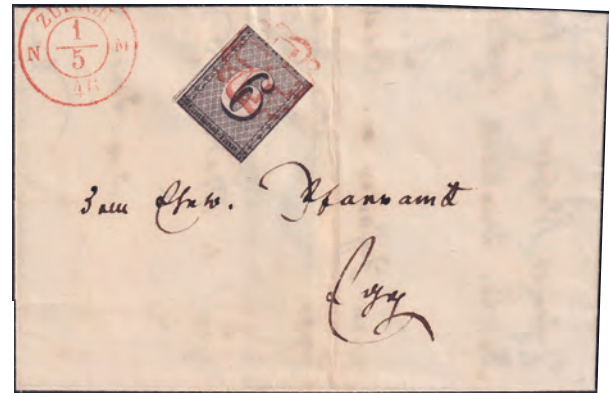 ZÜRICH
1
N M
5
46
6
Dem Ehrw. Pfarramt
Egg